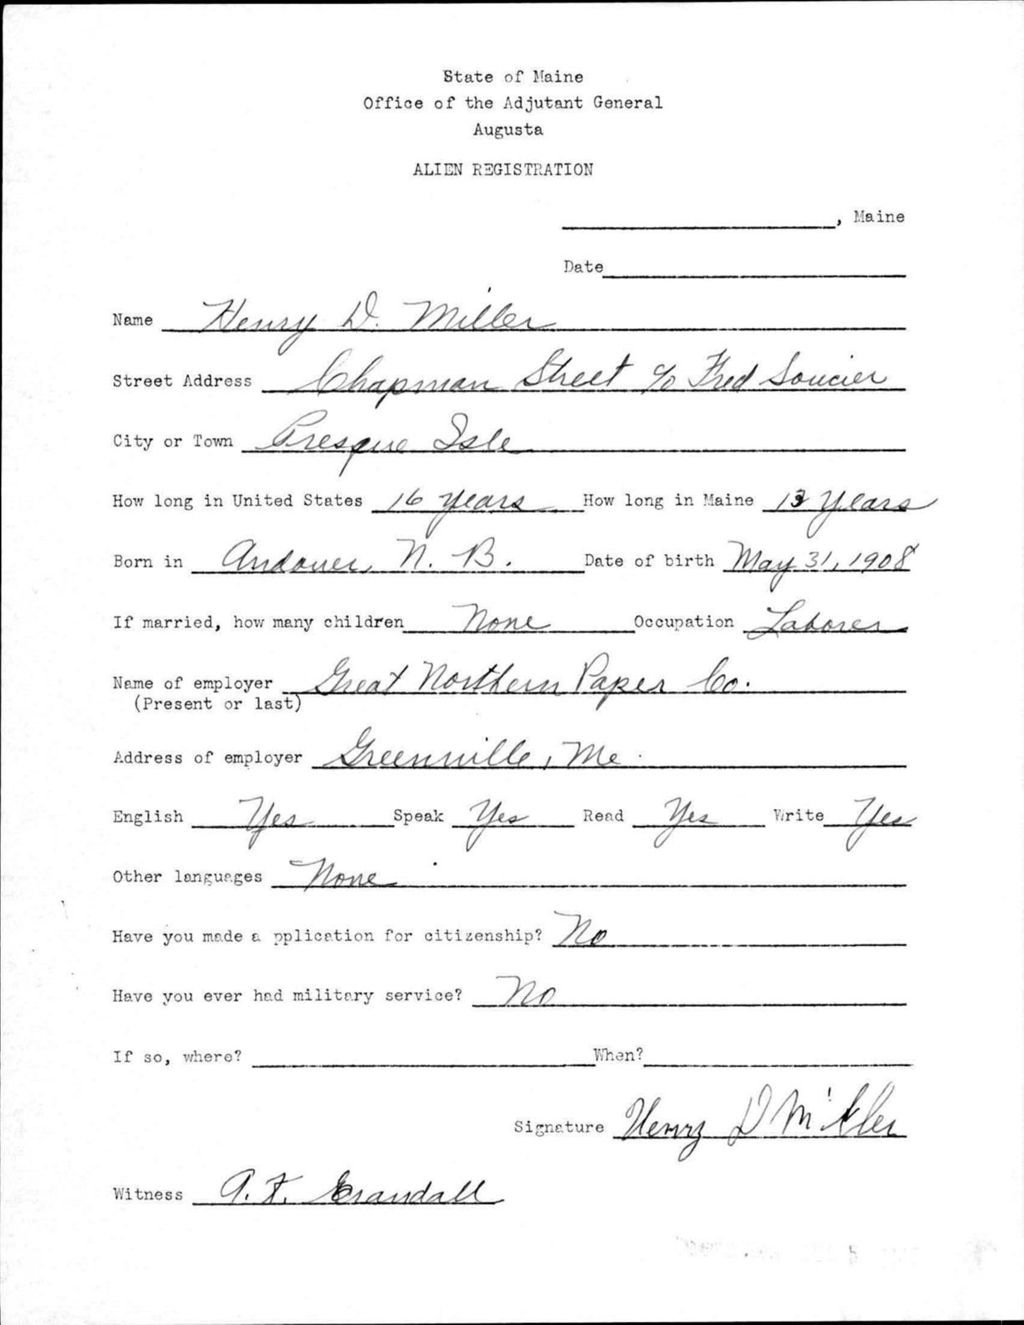 State of Maine
Office of the Adjutant General
Augusta
ALIEN REGISTRATION
, Maine
Date
Name Henry D. Miller
Street Address Chapman Street c/o Fred Soucier
City or Town Presque Isle
How long in United States 16 years How long in Maine 13 years
Born in Andover, N. B. Date of birth May 31, 1908
If married, how many children None Occupation Laborer
Name of employer Great Northern Paper Co.
(Present or last)
Address of employer Greenville, Me.
English Yes Speak Yes Read Yes Write Yes
Other languages None
Have you made a pplication for citizenship? No
Have you ever had military service? No
If so, where? When?
Signature Henry D Miller
Witness A. F. Crandall